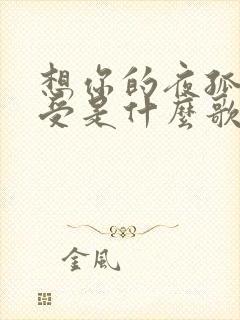 想你的夜孤
受是什麼歌
金風